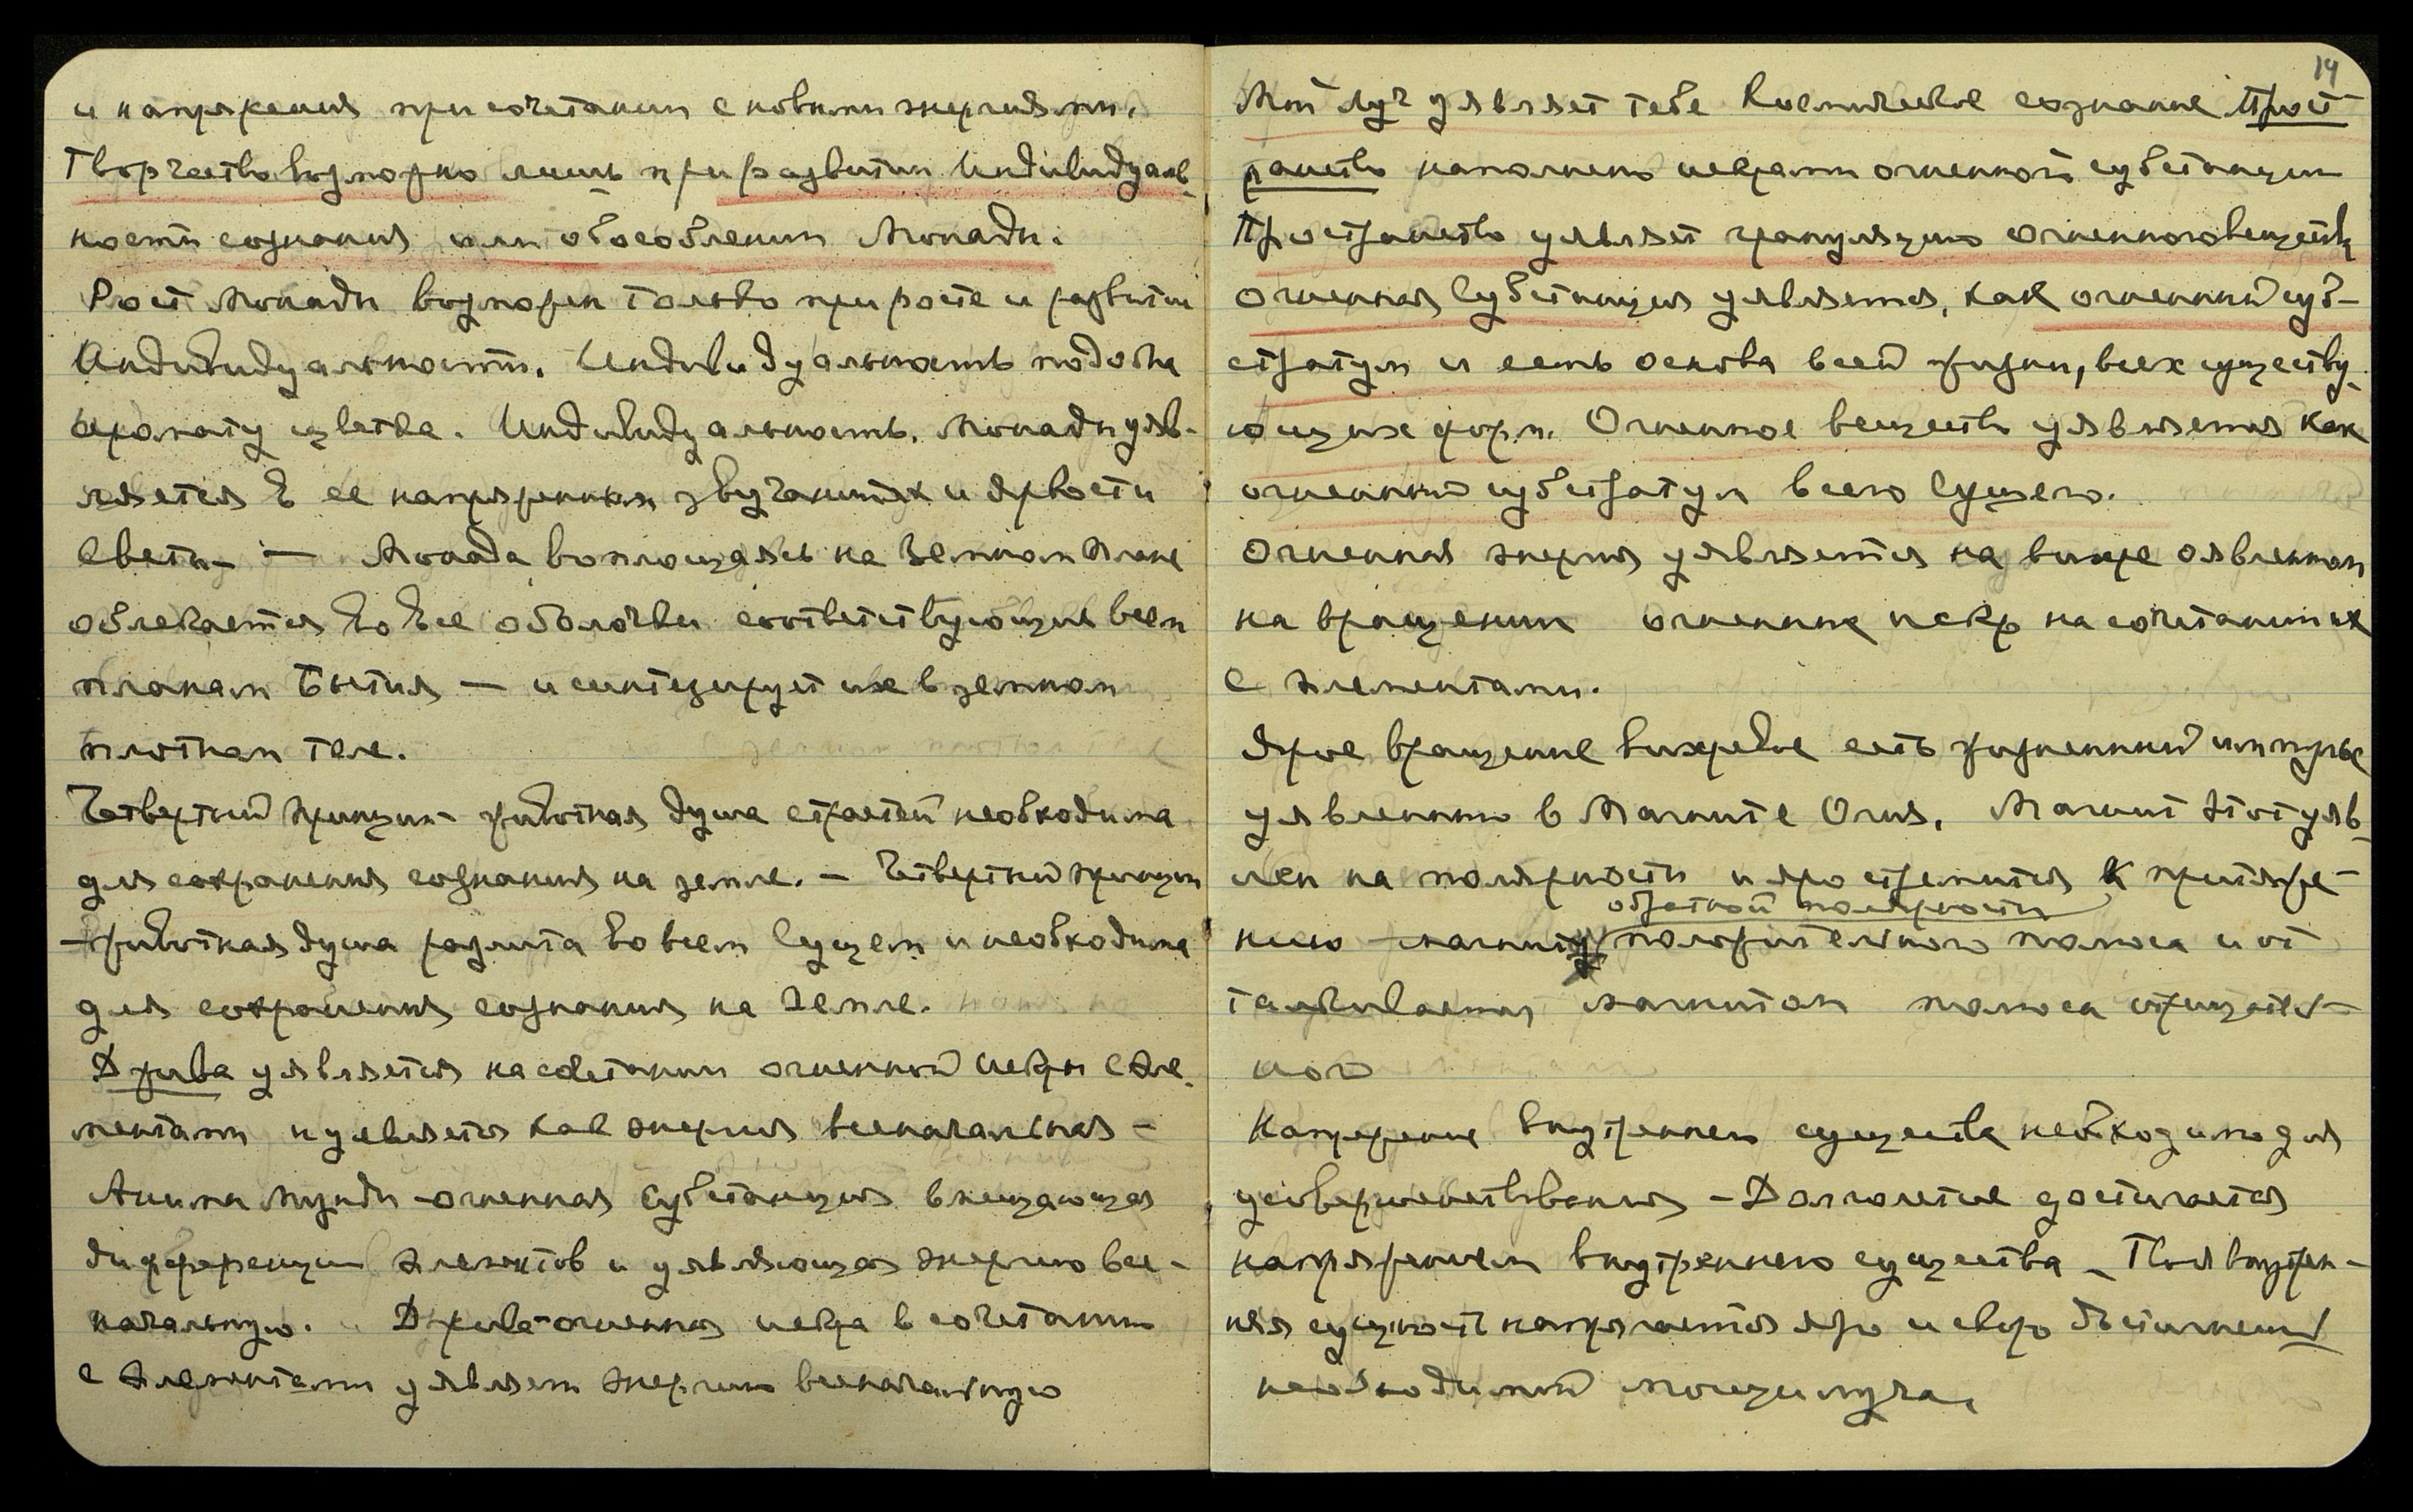 и напряжения при сочетании с новыми энергиями.
Творчество возможно лишь при развитии Индивидуаль-
ности сознания или обособлении Монады.
Рост Монады возможен только при росте и развитии
Индивидуальности. Индивидуальность подобна
аромату цветка. Индивидуальность Монады уяв-
ляется в ее напряженных звучаниях и яркости
света. — Монада воплощаясь на Земном плане
облекается во все оболочки соответствующие всем
планам Бытия — и синтезирует их в земном
плотном теле.
Четвертый принцип – животная душа страстей необходима
для сохранения сознания на земле. – Четвертый принцип
– животная душа разлита во всем Сущем и необходима
для сохранения сознания на Земле.
Джива уявляется на сочетании огненной искры с эле-
ментами и уявляется как энергия всеначальная –
Анима Мунди – огненная субстанция вмещающая
дифференции элементов и уявляющая энергию все-
начальную. Джива – огненная искра в сочетании
с элементами уявляет энергию всеначальную
14
Мой луч уявляет тебе Космическое сознание Прост
ранство наполнено искрами огненной субстанции
Пространство уявляет грануляцию огненного вещества
Огненная Субстанция уявляется, как огненный суб-
стратум и есть основа всей жизни, всех существу-
ющих форм. Огненное вещество уявляется как
огненный субстратум всего Сущего.
Огненная энергия уявляется на вихре явленном
на вращении огненных искр на сочетании их
с элементами.
Ярое вращение вихревое есть жизненный импульс
уявленный в Магните Огня. Магнит этот уяв-
лен на полярности и яро стремится к притяже-
обратной полярности
нию магнита положительного полюса и от
талкивается магнитом полюса отрицатель-
ной
Напряжение внутреннего существа необходимо для
усовершенствования – Долголетие достигается
напряжением внутреннего существа – Твоя внутрен-
няя сущность напрягается яро и скоро достигнешь
необходимый мощи луча.